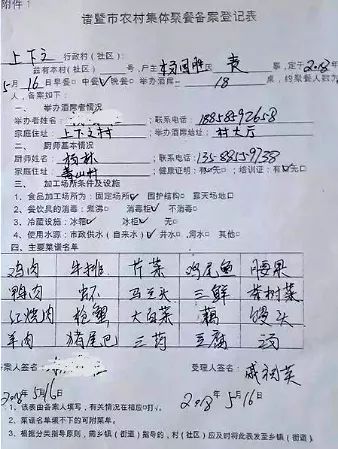 附件：
诸暨市农村集体聚餐备案登记表
上下文 行政村（社区）：
兹有本村（社区） 号，户主 杨国胜 氏 丧 事，定于2018
5月16日早餐□中餐☑晚餐□举办酒席 18 桌，约聚餐人数为
人，备案如下：
一、举办酒席者情况
举办者姓名： ；联系电话：18858592658
家庭住址：上下文村 ；举办酒席地址：村大厅
二、厨师基本情况
厨师姓名：杨林 ；联系电话：13588559738
家庭住址： 山村 健康证明：有☑无□；培训证：有☑无□
三、加工场所条件及设施
1、食品加工场所为：固定场所☑ 围护结构□ 露天场地□
2、餐饮具的消毒：煮沸□ 消毒柜☑ 不消毒□
3、冷藏设施：冰箱☑ 冰柜☑ 无□
4、使用水源：市政供水（自来水）☑井水□河水□ 其他□
四、主要菜谱名单
鸡肉 牛排 芹菜 鸡尾鱼 腰果
鸭肉 虾 马兰头 三鲜 香榧菜
红烧肉 枪蟹 大白菜 藕 馒头
羊肉 猪尾巴 三药 豆腐 汤
备案人签名： 受理人签名：戚 英
2018年5月16日 2018年5月16日
1、该表由备案人填写，有关情况在相应□打√。
2、菜谱名单填不下的可附菜单。
3、根据分类指导原则，需乡镇（街道）指导的，村（社区）应及时将此表发至乡镇（街道）